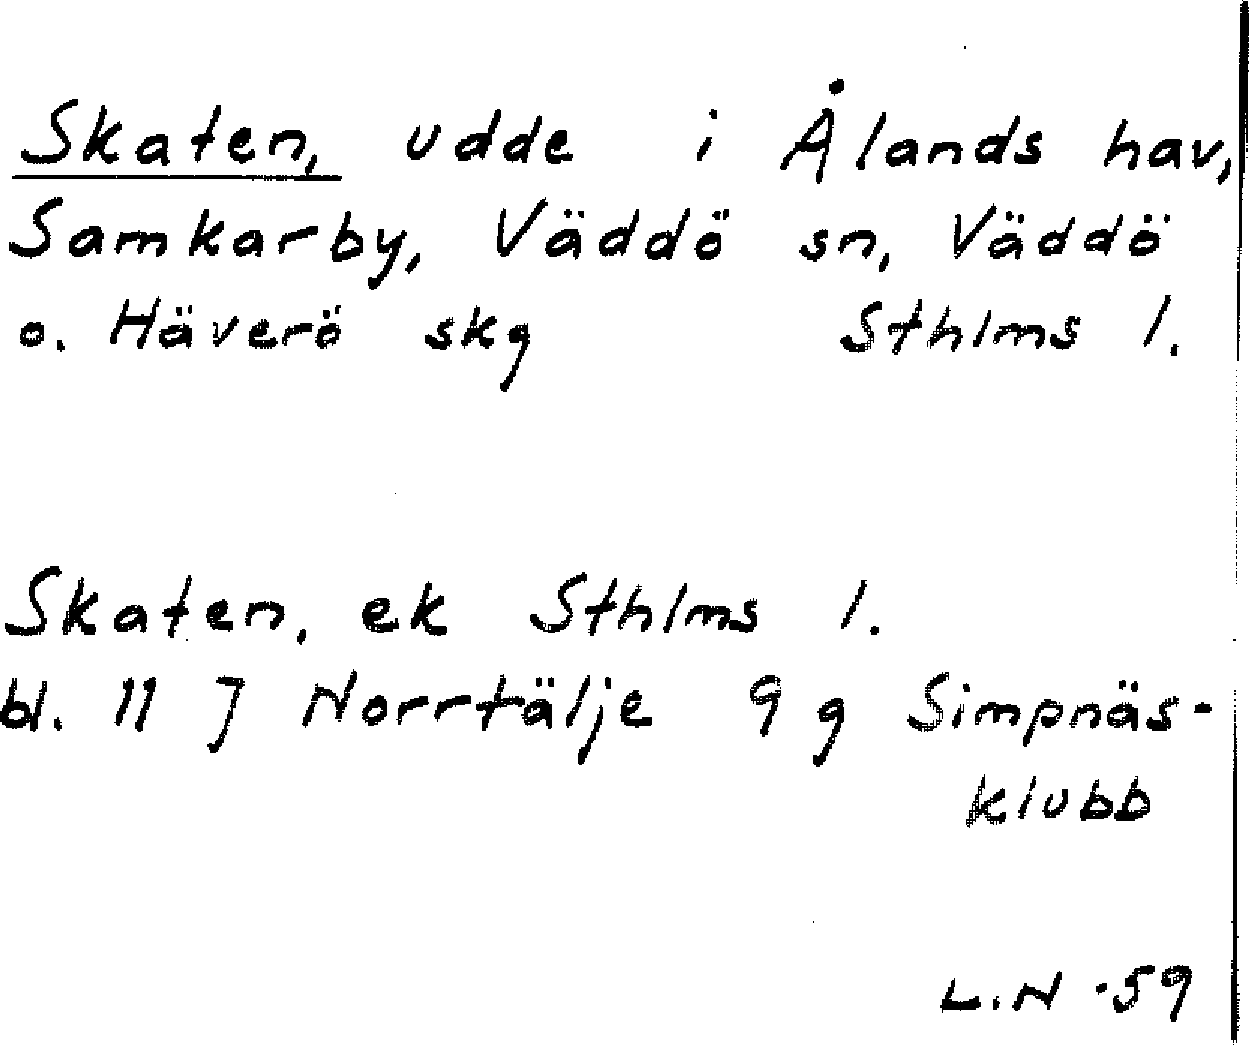 Skaten, udde i Ålands hav,
Samkarby, Väddö sn, Väddö
o. Häverö skg Sthlms l.
Skaten, ek Sthlms l.
bl. 11 J Norrtälje 9 g Simpnäs-
klubb
L.N -59